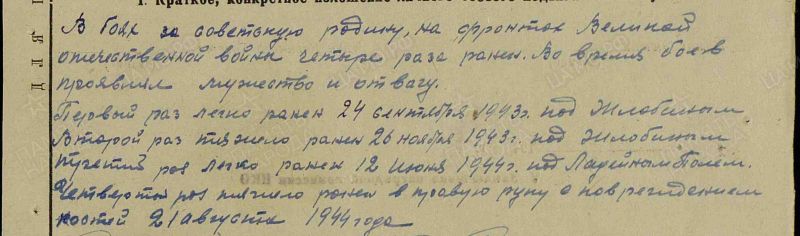 1. Краткое, конкретное изложение
В боях за советскую родину, на фронтах Великой
отечественной войны четыре раза ранен. Во время боев
проявлял мужество и отвагу.
Первый раз легко ранен 24 сентября 1943г. под Жлобиным
Второй раз тяжело ранен 26 ноября 1943г. под Жлобиным
третий раз легко ранен 12 июня 1944г. под Ладейным Полем.
Четвертый раз тяжело ранен в правую руку с повреждением
костей 21 августа 1944 года